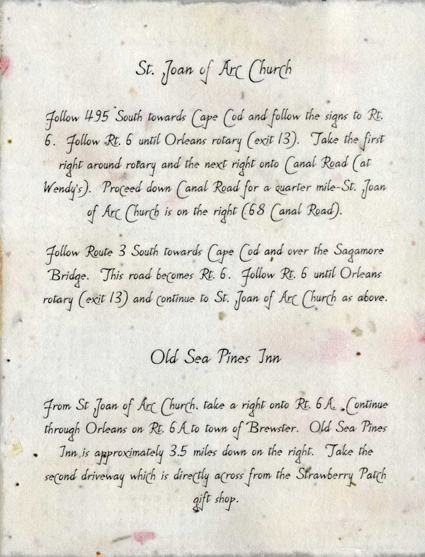 St. Joan of Arc Church
Follow 495 South towards Cape Cod and follow the signs to Rt.
6. Follow Rt. 6 until Orleans rotary (exit 13). Take the first
right around rotary and the next right onto Canal Road (at
Wendy's). Proceed down Canal Road for a quarter mile-St. Joan
of Arc Church is on the right (68 Canal Road).
Follow Route 3 South towards Cape Cod and over the Sagamore
Bridge. This road becomes Rt. 6. Follow Rt. 6 until Orleans
rotary (exit 13) and continue to St. Joan of Arc Church as above.
Old Sea Pines Inn
From St Joan of Arc Church, take a right onto Rt. 6A. Continue
through Orleans on Rt. 6A to town of Brewster. Old Sea Pines
Inn is approximately 3.5 miles down on the right. Take the
second driveway which is directly across from the Strawberry Patch
gift shop.